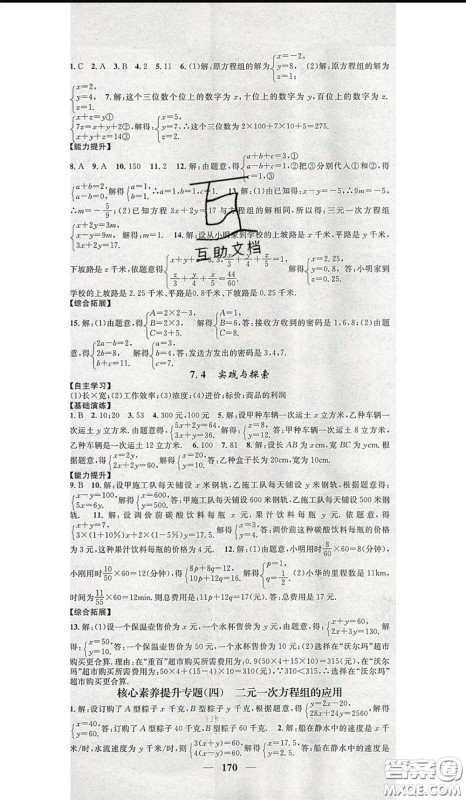 1.C 2.A 3.B 4.2 5.11 6.(1)解:原方程组的解为{x=-2, y=8, z=1. (2)解:原方程组的解为
{x=2, y=4, z=1. 7.解:这个三位数个位上的数字为x,十位上的数字为y,百位上的数字为z.
{x+z=y① 7z=x+y+2②,解得: x+y+z=14③ ∴这个三位数为2×100+7×10+5=275.
【能力提升】
8.A 9.A 10.150 11.2 12.解:由题意,得{a+b+c=3① ②把③分别代入①和②,得 c=1③
{a+b=2, a-b=0. 解得 ∴a=1,b=1,c=1. 13.解:(1)由已知得:x-y=5,∴9m=5,
(2)已知方程3x+2y=17与方程组的解相同,所以得:三元一次方程组
{x+2y=3m, x-y=9m, 3x+2y=17. 解得:m=1. 14.解:设从小明家到学校的上坡路是x千米,平路是y千米,
下坡路是z千米,依题意得
学校的上坡路是2.25千米、平路是0.8千米、下坡路是2.25千米.
【综合拓展】
15.解:(1)由题意,得{A=2×2-3, B=2×3, C=3+5. 解得{A=1, B=6, C=8. 答:接收方收到的密码是1,6,8;(2)由题意,
得{2a-b=2, 2b=8, b+c=11. 解得 答:发送方发出的密码是3,4,7.
7.4 实践与探索
【自主学习】
(1)长×宽;(2)工作效率;(3)浓度;(4)进价;标价;商品的利润
【基础演练】
1.B 2.10;20 3.53 4.300元,100元 5.解:设甲种车辆一次运土x立方米,乙种车辆一
次运土y立方米.由题意得,{5x+2y=64, 3x+y=36. 解得:{x=8, y=12. 答:甲种车辆一次运土8立方米,
乙种车辆一次运土12立方米. 6.100 7.81 8.解:设长AB为xcm,宽BC为ycm.根
据题意,得 解得 答:乙种盒子长为20cm,宽为10cm.
【能力提升】
9.B 10.解:设甲施工队每天铺设x米钢轨,乙施工队每天铺设y米钢轨,根据题意,得
{x-y=100, 5x=6y. 解得{x=600, y=500. 答:甲施工队每天铺设600米钢轨,乙施工队每天铺设500米钢
轨. 11.解:设调价前碳酸饮料每瓶x元,果汁饮料每瓶y元.依题意,得
{x+y=7, 3×(1+10%)x+2×(1-5%)y=17.5. 解得:{x=3, y=4. 答:调价前这种碳酸饮料每瓶的价格
为3元,这种果汁饮料每瓶的价格为4元. 12.解:(1)由题意,小明用时8/60×60=8(分钟),
小刚用时10/50×60=12(分钟),得{8p+8q=12, 10p+12q=16. 解得{p=1, q=1/2. (2)小华的里程数是11km,
时间为11/55×60=12min.则总费用是11p+12q=17(元).答:总费用是17元.
【综合拓展】
13.解:(1)设一个保温壶售价为x元,一个水杯售价为y元.由题意,得:{x+y=60, 2x+3y=130. 解
得:{x=50, y=10. 答:一个保温壶售价为50元,一个水杯售价为10元;(2)选择在“沃尔玛”超市
购买更合算.理由:在“重百”超市购买所需费用为:0.9(50×4+15×10)=315(元),在“沃尔
玛”超市购买所需费用为:50×4+(15-4)×10=310(元),∵310<315,∴选择在“沃尔玛”超
市购买更合算.
核心素养提升专题(四) 二元一次方程组的应用
1.解:设订购了A型粽子x千克,B型粽子y千克,根据题意,得{y=2x-20, 28x+24y=2560. 解得
{x=40, y=60. 答:订购了A型粽子40千克,B型粽子60千克. 2.解:设船在静水中的速度是x千
米/时,水流速度为y千米/时,则{3(x+y)=60, 4(x-y)=60. 解得 答:船在静水中的速度是
170
互助文档
答案圈
MXQE.COM